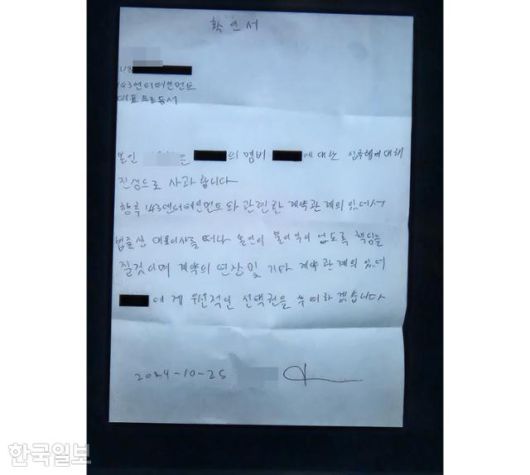 확인서
143엔터테인먼트
대표 프로듀서
본인 은 의 멤버 에 대한 성추행에 대해
진심으로 사과 합니다
향후 143엔터테인먼트와 관련한 계약관계에 있어서
법률상 대표이사를 떠나 본인이 불이익이 없도록 책임을
질것이며 계약의 연장 및 기타 계약 관계에 있어
에게 우선적인 선택권을 부여하겠습니다
2024-10-25
한국일보